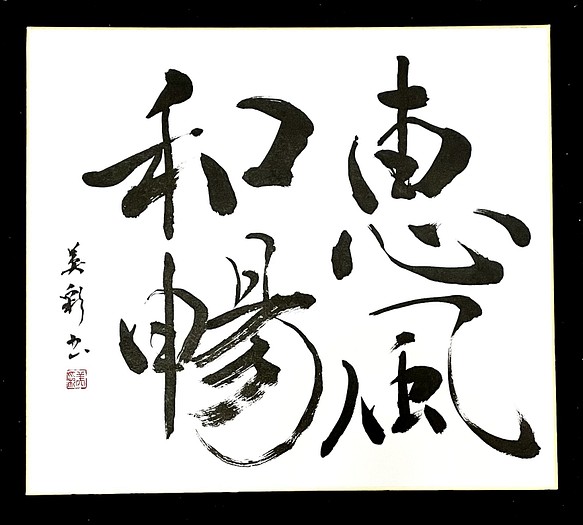 恵風
和暢
美彩書